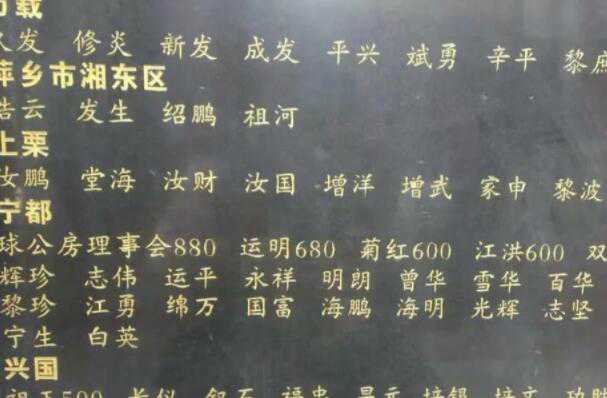 载
发 修炎 新发 成发 平兴 斌勇 辛平 黎庶
萍乡市湘东区
浩云 发生 绍鹏 祖河
上栗
汝鹏 堂海 汝财 汝国 增洋 增武 家申 黎波
宁都
球公房理事会880 运明680 菊红600 江洪600 双
辉珍 志伟 运平 永祥 明朗 曾华 雪华 百华
黎珍 江勇 绵万 国富 海鹏 海明 光辉 志坚
宁生 白英
兴国